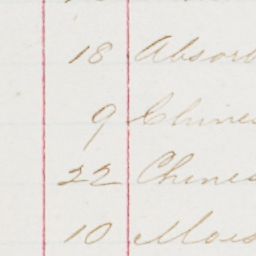 18 Absorb
9 Chines
22 Chines
10 Mois